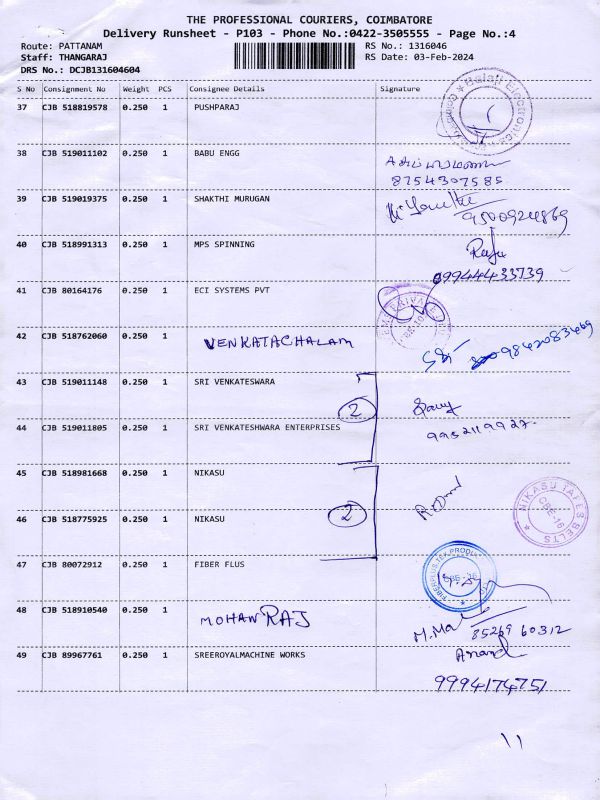 THE PROFESSIONAL COURIERS, COIMBATORE
Delivery Runsheet - P103 - Phone No.:0422-3505555 - Page No.:4
Route: PATTANAM RS No.: 1316046
Staff: THANGARAJ RS Date: 03-Feb-2024
DRS No.: DCJB131604604
S No Consignment No Weight PCS Consignee Details Signature
37 CJB 518819578 0.250 1 PUSHPARAJ Balaji Electronics
38 CJB 519011102 0.250 1 BABU ENGG
8754307585
39 CJB 519019375 0.250 1 SHAKTHI MURUGAN
9500924869
40 CJB 518991313 0.250 1 MPS SPINNING Raju
09944433739
41 CJB 80164176 0.250 1 ECI SYSTEMS PVT
42 CJB 518762060 0.250 1 VENKATACHALAM 9842083469
43 CJB 519011148 0.250 1 SRI VENKATESWARA
2
44 CJB 519011805 0.250 1 SRI VENKATESHWARA ENTERPRISES 9952119927
45 CJB 518981668 0.250 1 NIKASU
NIKASU TAPES BELTS CBE-16
46 CJB 518775925 0.250 1 NIKASU 2
47 CJB 80072912 0.250 1 FIBER FLUS FIBERPLUS TEX PRODU
48 CJB 518910540 0.250 1 MOHAN RAJ
85269 60312
49 CJB 89967761 0.250 1 SREEROYALMACHINE WORKS Anand
9994174751
11